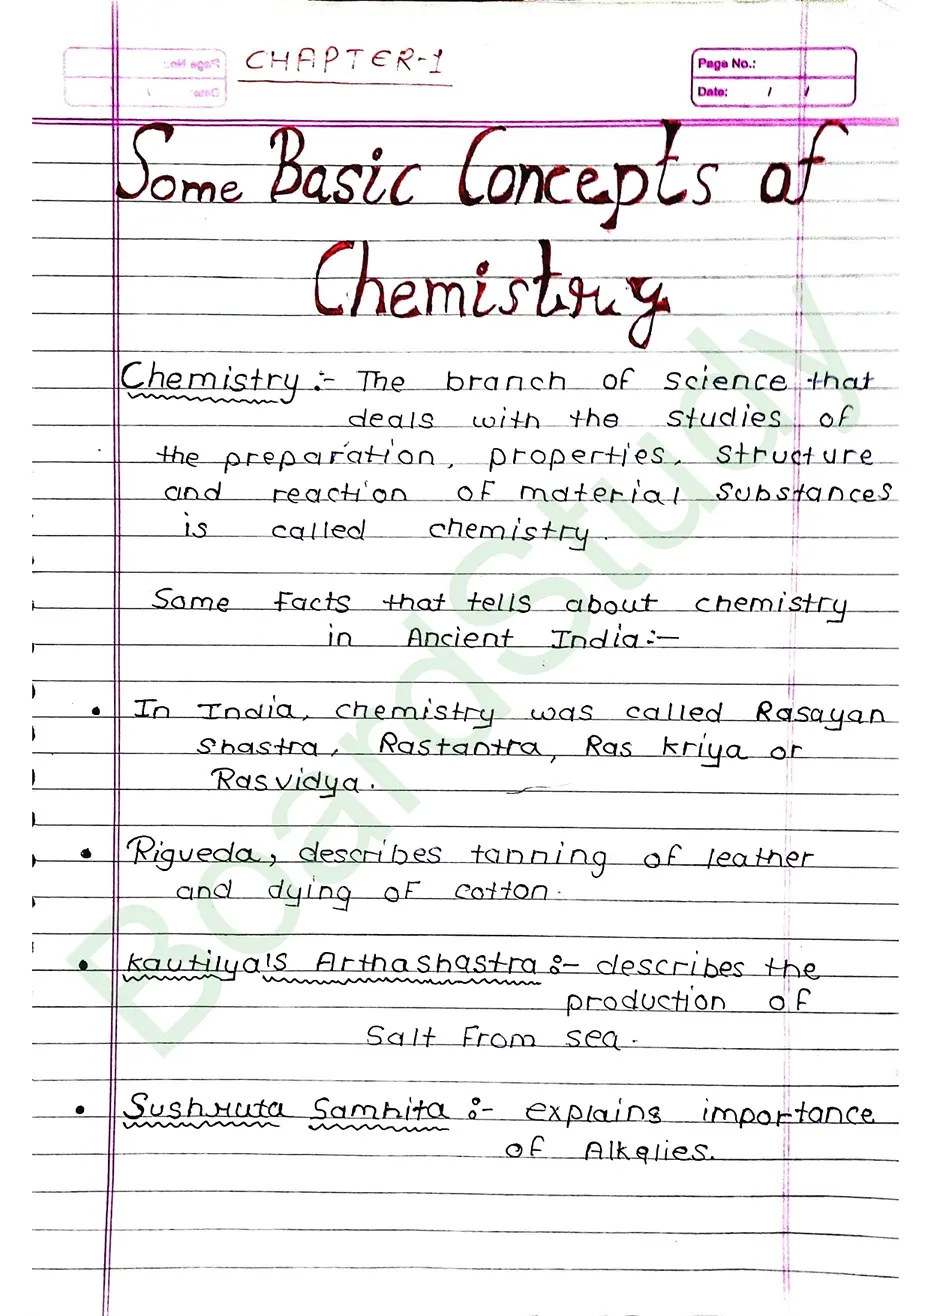 CHAPTER-1
Page No.:
Date: / /
Some Basic Concepts of
Chemistry
Chemistry :- The branch of science that
deals with the studies of
the preparation, properties, structure
and reaction of material substances
is called chemistry.
Some facts that tells about chemistry
in Ancient India:-
• In India, chemistry was called Rasayan
Shastra, Rastantra, Ras kriya or
Rasvidya.
• Rigveda, describes tanning of leather
and dying of cotton.
• Kautilya's Arthashastra :- describes the
production of
Salt From sea.
• Sushruta Samhita :- explains importance
of Alkalies.
BoardStudy